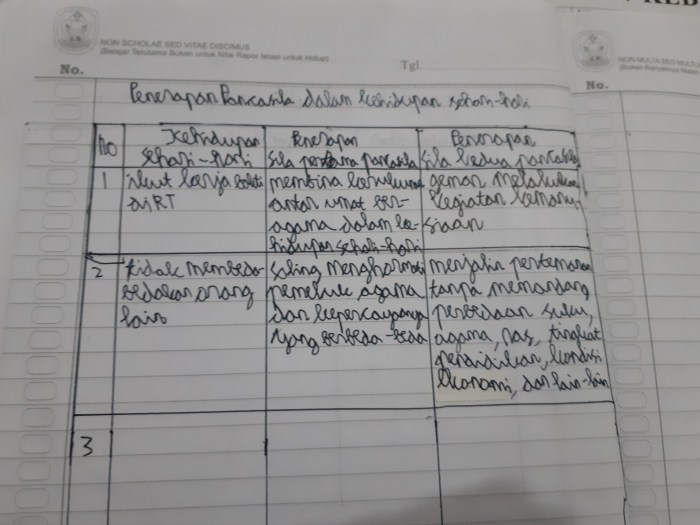 NON SCHOLAE SED VITAE DISCIMUS
(Belajar Terutama Bukan untuk Nilai Rapor tetapi untuk Hidup)
No.
Tgl.
NON MULTA SED MULTUM
No.
Penerapan Pancasila dalam kehidupan sehari-hari
No
Kehidupan
sehari-hari
Penerapan
sila pertama pancasila
Penerapan
sila kedua pancasila
1
ikut kerja bakti
di RT
membina kerukunan
antar umat ber-
agama dalam ke-
hidupan sehari-hari
gemar melakukan
kegiatan kemanu-
siaan
2
tidak membeda-
bedakan orang
lain
saling menghormati
pemeluk agama
dan kepercayaan
yang berbeda-beda
menjalin pertemanan
tanpa memandang
perbedaan suku,
agama, ras, tingkat
pendidikan, kondisi
ekonomi, dan lain-lain
3